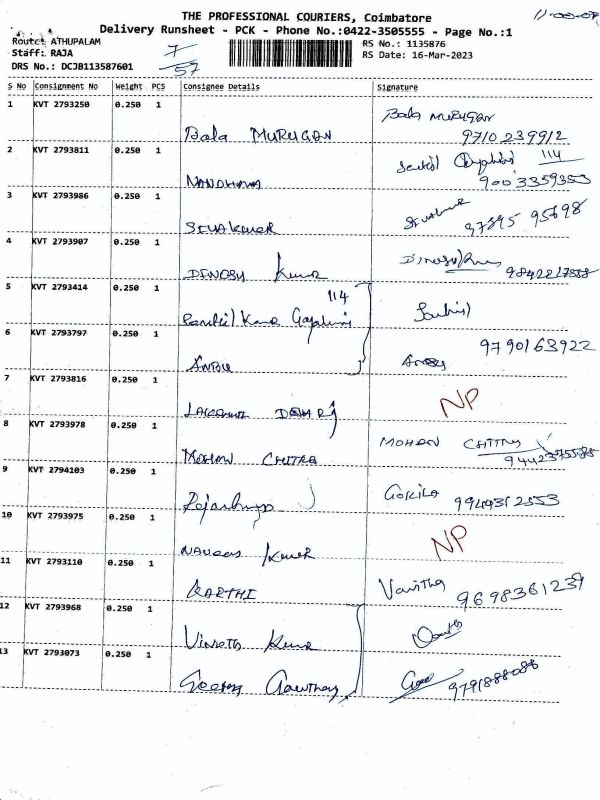 THE PROFESSIONAL COURIERS, Coimbatore
Delivery Runsheet - PCK - Phone No.:0422-3505555 - Page No.:1
Route: ATHUPALAM
Staff: RAJA
DRS No.: DCJB113587601
7/57
RS No.: 1135876
RS Date: 16-Mar-2023
S No Consignment No Weight PCS Consignee Details Signature
1 KVT 2793250 0.250 1 Bala MURUGAN Bala MURUGAN 9710239912
2 KVT 2793811 0.250 1 NANDHANA 114 9003359353
3 KVT 2793986 0.250 1 SIVAKUMAR 97895 95698
4 KVT 2793907 0.250 1 DINESH Kumar 9842217558
5 KVT 2793414 0.250 1 114
6 KVT 2793797 0.250 1 9790163922
7 KVT 2793816 0.250 1 NP
8 KVT 2793978 0.250 1 MOHAN CHITRA MOHAN CHITRA
9 KVT 2794103 0.250 1 Gokila
10 KVT 2793975 0.250 1 NP
11 KVT 2793110 0.250 1 KARTHI Vanitha 9698361239
12 KVT 2793968 0.250 1 Vinoth Kumar
13 KVT 2793073 0.250 1 9791888086